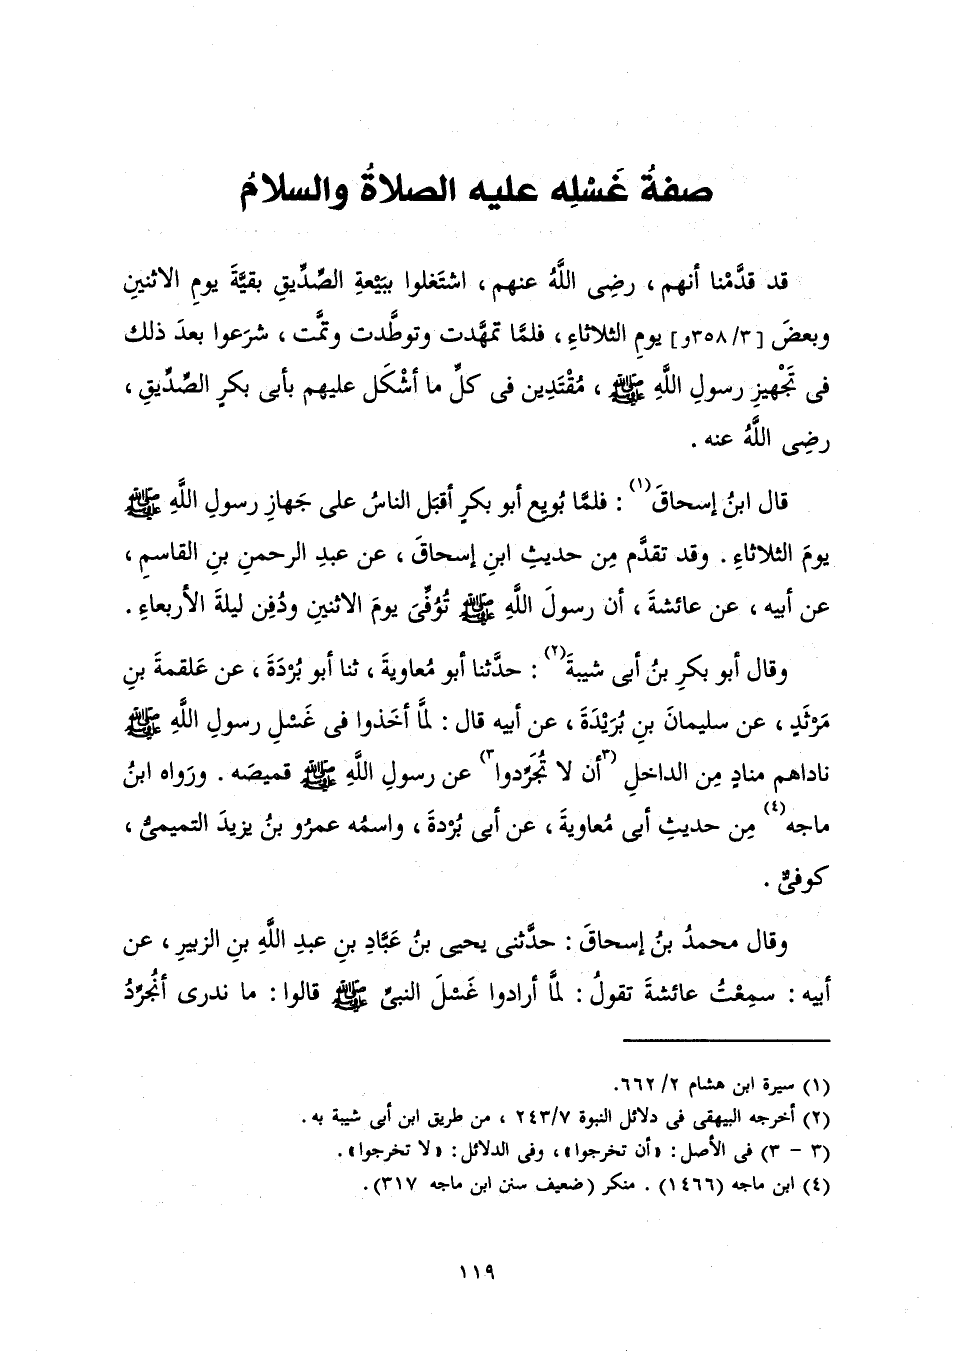 صفةُ غَسْلِه عليه الصلاةُ والسلامُ
قد قدَّمْنا أنهم ، رضِى اللَّهُ عنهم ، اشتَغلوا ببَيْعةِ الصِّدِّيقِ بقيَّةَ يومِ الاثنينِ
وبعضَ [٣/ ٣٥٨و] يومِ الثلاثاءِ ، فلمَّا تمهَّدت وتوطَّدت وتمَّت ، شرَعوا بعدَ ذلك
فى تَجْهيزِ رسولِ اللَّهِ ﷺ ، مُقْتَدِين فى كلِّ ما أشْكَل عليهم بأبى بكرٍ الصِّدِّيقِ ،
رضِى اللَّهُ عنه .
قال ابنُ إسحاقَ(١) : فلمَّا بُويِع أبو بكرٍ أقبَل الناسُ على جَهازِ رسولِ اللَّهِ ﷺ
يومَ الثلاثاءِ . وقد تقدَّم مِن حديثِ ابنِ إسحاقَ ، عن عبدِ الرحمنِ بنِ القاسمِ ،
عن أبيه ، عن عائشةَ ، أن رسولَ اللَّهِ ﷺ تُوُفِّىَ يومَ الاثنينِ ودُفِن ليلةَ الأربعاءِ .
وقال أبو بكرِ بنُ أبى شيبةَ(٢) : حدَّثنا أبو مُعاويةَ ، ثنا أبو بُرْدَةَ ، عن عَلقمةَ بنِ
مَرْثَدٍ ، عن سليمانَ بنِ بُرَيْدَةَ ، عن أبيه قال : لمَّا أخَذوا فى غَسْلِ رسولِ اللَّهِ ﷺ
ناداهم منادٍ مِن الداخلِ (٣أن لا تُجَرِّدوا٣) عن رسولِ اللَّهِ ﷺ قميصَه . ورَواه ابنُ
ماجه(٤) مِن حديثِ أبى مُعاويةَ ، عن أبى بُرْدةَ ، واسمُه عمرُو بنُ يزيدَ التميمىُّ ،
كوفىٌّ .
وقال محمدُ بنُ إسحاقَ : حدَّثنى يحيى بنُ عَبَّادِ بنِ عبدِ اللَّهِ بنِ الزبيرِ ، عن
أبيه : سمِعْتُ عائشةَ تقولُ : لمَّا أرادوا غَسْلَ النبىِّ ﷺ قالوا : ما ندرى أنُجرِّدُ
(١) سيرة ابن هشام ٢/ ٦٦٢.
(٢) أخرجه البيهقى فى دلائل النبوة ٢٤٣/٧ ، من طريق ابن أبى شيبة به .
(٣ - ٣) فى الأصل : «أن تخرجوا» ، وفى الدلائل : «لا تخرجوا» .
(٤) ابن ماجه (١٤٦٦) . منكر (ضعيف سنن ابن ماجه ٣١٧).
١١٩